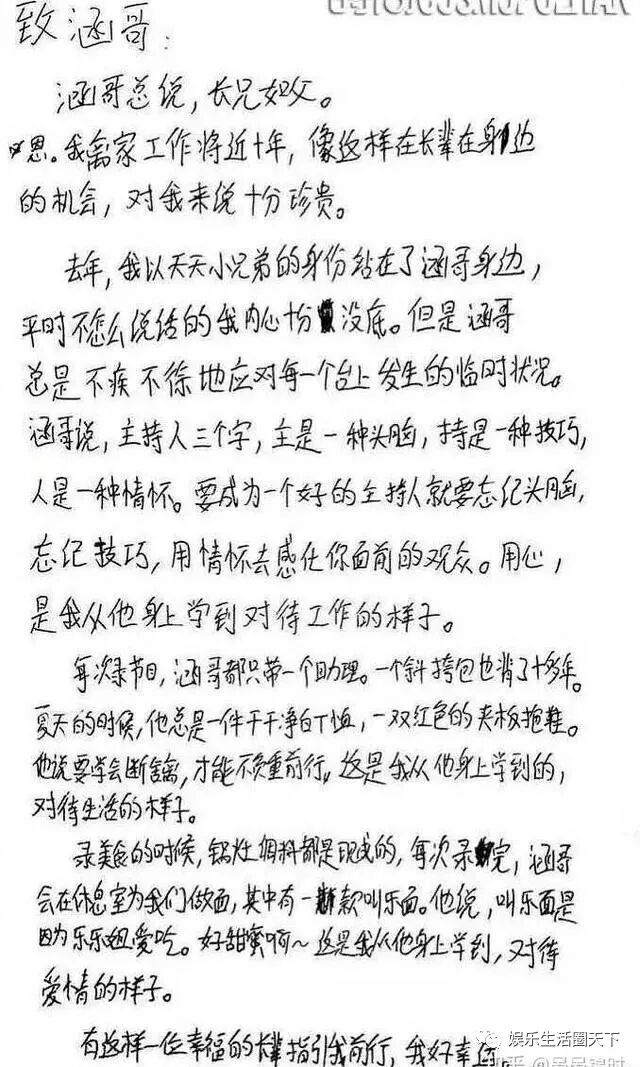 致涵哥:
涵哥总说,长兄如父。
恩。我离家工作将近十年,像这样在长辈在身边
的机会,对我来说十分珍贵。
去年,我以天天小兄弟的身份站在了涵哥身边,
平时不怎么说话的我内心十分没底。但是涵哥
总是不疾不徐地应对每一个台上发生的临时状况。
涵哥说,主持人三个字,主是一种头脑,持是一种技巧,
人是一种情怀。要成为一个好的主持人就要忘记头脑,
忘记技巧,用情怀去感化你面前的观众。用心,
是我从他身上学到对待工作的样子。
每次录节目,涵哥都只带一个助理。一个斜挎包也背了十多年。
夏天的时候,他总是一件干干净白T恤,一双红色的夹板拖鞋。
他说要学会断舍离,才能不负重前行。这是我从他身上学到的,
对待生活的样子。
录美食的时候,锅灶调料都是现成的,每次录完,涵哥
会在休息室为我们做面,其中有一款叫乐面。他说,叫乐面是
因为乐乐姐爱吃。好甜蜜啊~这是我从他身上学到,对待
爱情的样子。
有这样一位幸福的长辈指引我前行,我好幸
娱乐生活圈天下
知乎